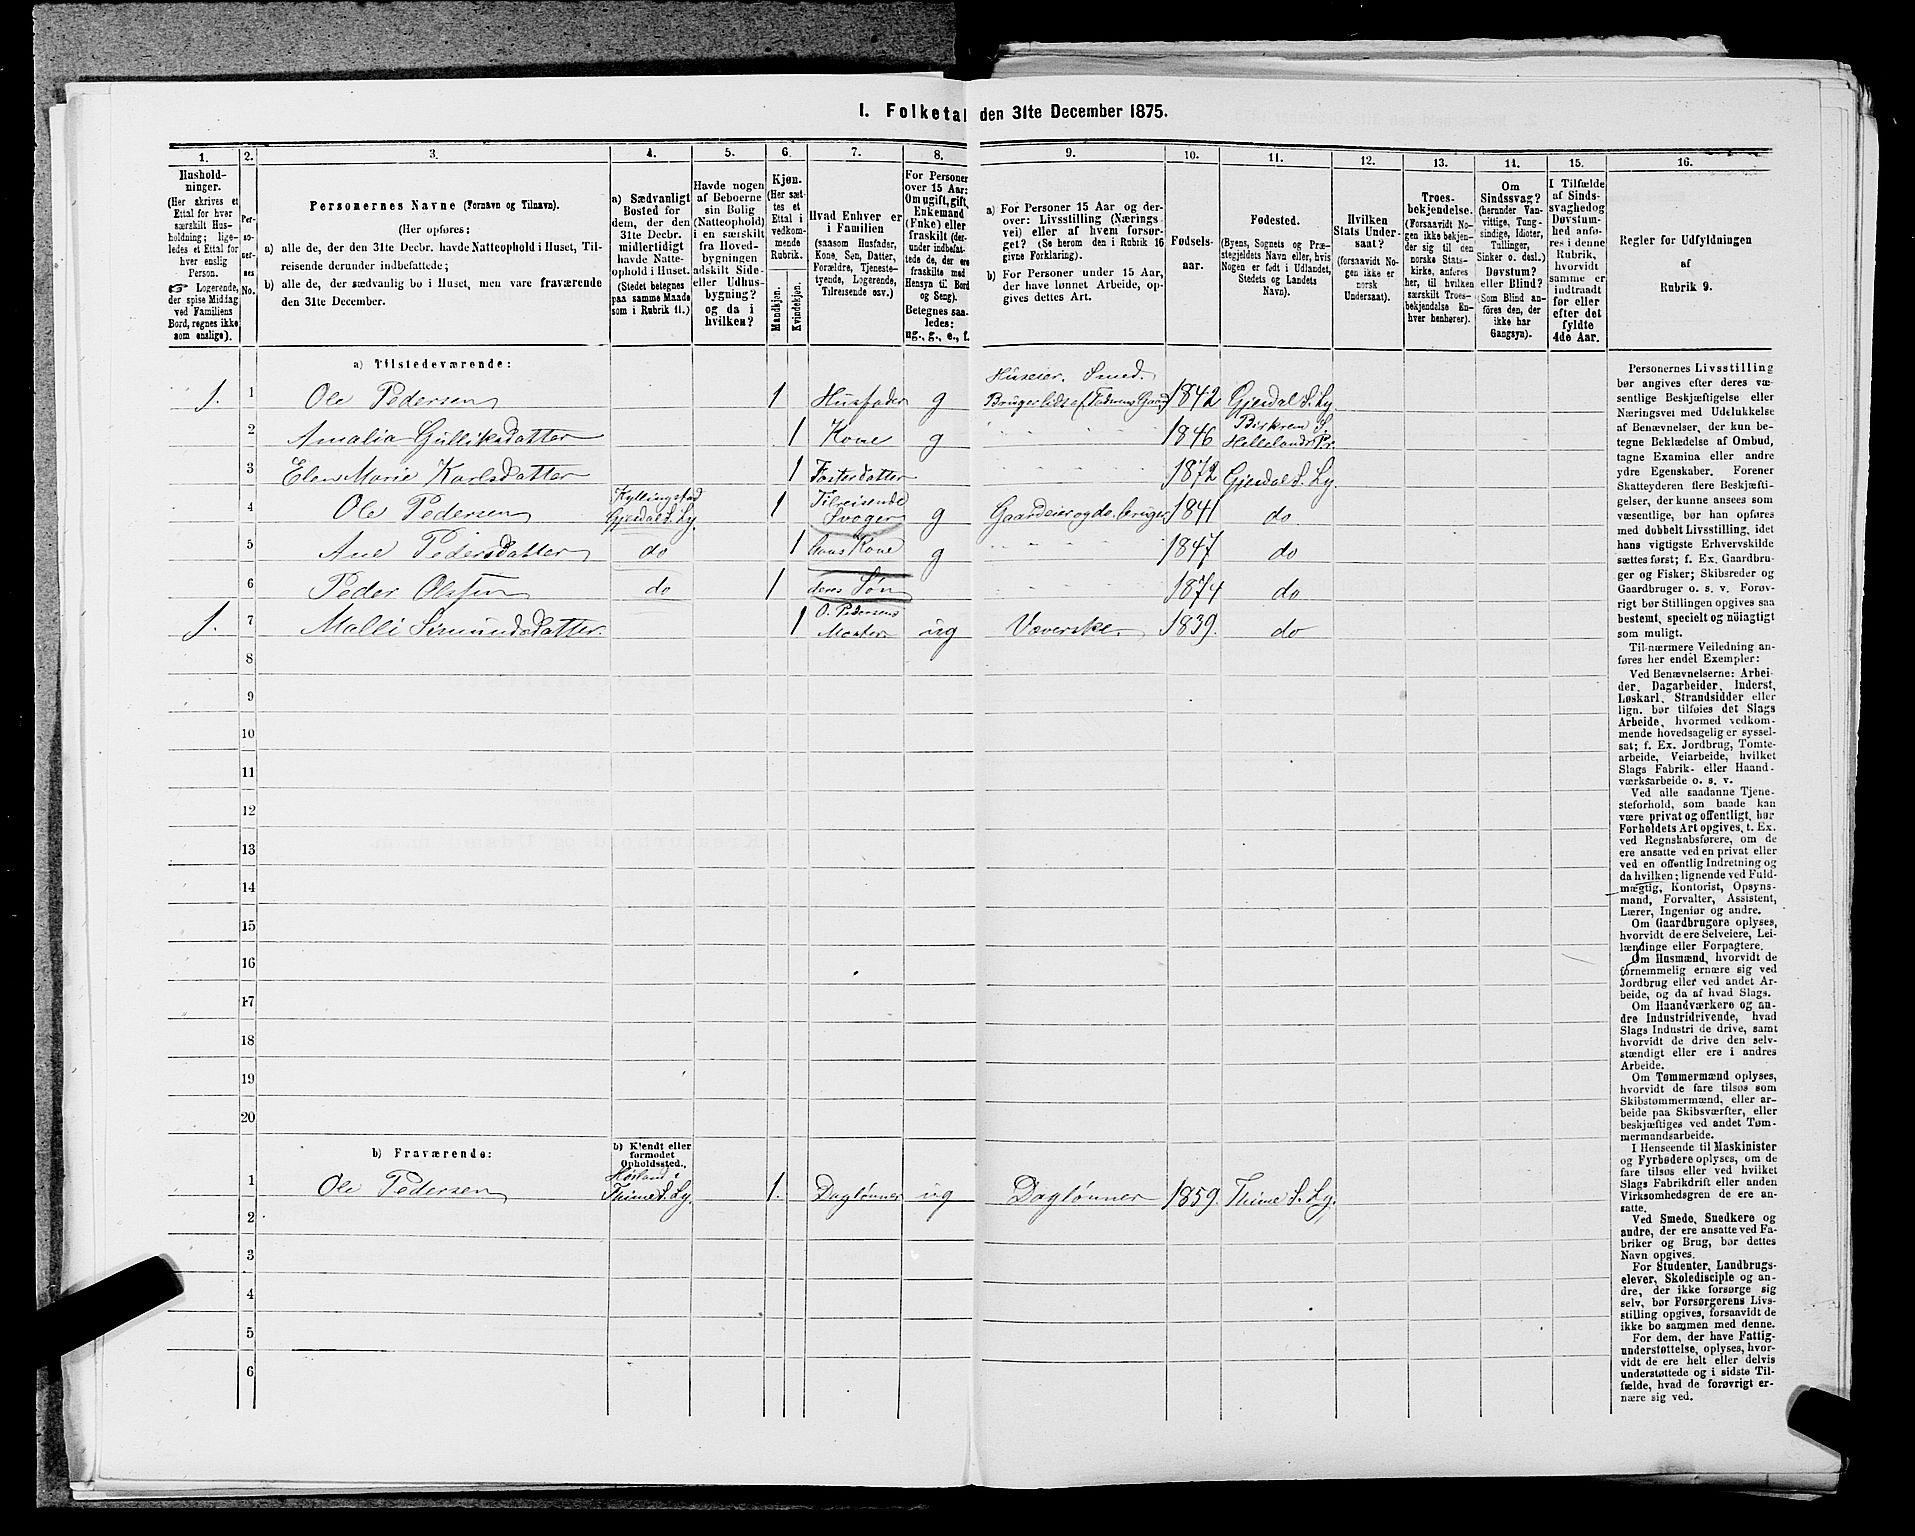 I. Folketal den 31te December 1875.
1.
Hushold-
ninger.
(Her skrives et
Ettal for hver
særskilt Hus-
holdning; lige-
ledes et Ettal for
hver enslig
Person.
☞ Logerende,
der spise Middag
ved Familiens
Bord, regnes ikke
som enslige).
2.
Per-
so-
ner-
nes
No.
3.
Personernes Navne (Fornavn og Tilnavn).
(Her opføres:
a) alle de, der den 31te Decbr. havde Natteophold i Huset, Til-
reisende derunder indbefattede;
b) alle de, der sædvanlig bo i Huset, men vare fraværende
den 31te December.
4.
a) Sædvanligt
Bosted for
dem, der den
31te Decbr.
midlertidigt
havde Natte-
ophold i Huset.
(Stedet betegnes
paa samme Maade
som i Rubrik 11.)
5.
Havde nogen
af Beboerne
sin Bolig
(Natteophold)
i en særskilt
fra Hoved-
bygningen
adskilt Side-
eller Udhus-
bygning?
og da i
hvilken?
6.
Kjøn.
(Her sæt-
tes et
Ettal i
vedkom-
mende
Rubrik.
Mandkjøn.
Kvindekjøn.
7.
Hvad Enhver er
i Familien
(saasom Husfader,
Kone, Søn, Datter,
Forældre, Tjeneste-
tyende, Logerende,
Tilreisende osv.)
8.
For Personer
over 15 Aar:
Om ugift, gift,
Enkemand
(Enke) eller
fraskilt (der-
under indbefat-
tede de, der ere
fraskilte med
Hensyn til Bord
og Seng).
Betegnes saa-
ledes:
ug., g., e., f.
9.
a) For Personer 15 Aar og der-
over: Livsstilling (Nærings-
vei) eller af hvem forsør-
get? (Se herom den i Rubrik 16
givne Forklaring).
b) For Personer under 15 Aar,
der have lønnet Arbeide, op-
gives dettes Art.
10.
Fødsels-
aar.
11.
Fødested.
(Byens, Sognets og Præ-
stegjeldets Navn eller, hvis
Nogen er født i Udlandet,
Stedets og Landets
Navn).
12.
Hvilken
Stats Under-
saat?
(forsaavidt No-
gen ikke er
norsk
Undersaat).
13.
Troes-
bekjendelse.
(Forsaavidt No-
gen ikke bekjen-
der sig til den
norske Stats-
kirke, anføres
her, til hvilken
særskilt Troes-
bekjendelse En-
hver henhører).
14.
Om
Sindssvag?
(herunder Van-
vittige, Tung-
sindige, Idioter,
Tullinger,
Sinker o. desl.)
Døvstum?
eller Blind?
(Som Blind an-
føres den, der
ikke har
Gangsyn).
15.
I Tilfælde
af Sinds-
svaghed og
Døvstum-
hed anfø-
res i denne
Rubrik,
hvorvidt
samme er
indtraadt
før eller
efter det
fyldte
4de Aar.
16.
Regler for Udfyldningen
af
Rubrik 9.
a) Tilstedeværende:
1. 1 Ole Pedersen 1 Husfader g Huseier. Smed. Bruger lidt af Faderens Gaard 1842 Gjesdal S. Ly.
2 Amalia Gulliksdatter 1 Kone g " 1846 Birkrem S. Hellelands Pr.
3 Elen Marie Karlsdatter 1 Fosterdatter " 1872 Gjesdal S. Ly
4 Ole Pedersen Kyllingstad Gjesdal S. Ly. 1 Tilreisende Svoger g Gaardeier og do. bruger 1841 do
5 Ane Pedersdatter do 1 hans Kone g " 1847 do
6 Peder Olsen do 1 deres Søn " 1874 do
1. 7 Malli Simundsdatter. 1 O. Pedersens Moster ug Væverske. 1839. do
8
9
10
11
12
13
14
15
16
17
18
19
20
b) Fraværende:
b) Kjendt eller
formodet
Opholdssted.
1 Ole Pedersen Høiland i Thime S. Ly. 1. Daglønner ug Daglønner 1859. Thime S. Ly.
2
3
4
5
6
Personernes Livsstilling
bør angives efter deres væ-
sentlige Beskjæftigelse eller
Næringsvei med Udelukkelse
af Benævnelser, der kun be-
tegne Beklædelse af Ombud,
tagne Examina eller andre
ydre Egenskaber. Forener
Skatteyderen flere Beskjæfti-
gelser, der kunne ansees som
væsentlige, bør han opføres
med dobbelt Livsstilling, idet
hans vigtigste Erhvervskilde
sættes først; f. Ex. Gaardbru-
ger og Fisker; Skibsreder og
Gaardbruger o. s. v. Forøv-
rigt bør Stillingen opgives saa
bestemt, specielt og nøiagtigt
som muligt.
Til nærmere Veiledning an-
føres her endel Exempler:
Ved Benævnelserne: Arbei-
der, Dagarbeider, Inderst,
Løskarl, Strandsidder eller
lign. bør tilføies det Slags
Arbeide, hvormed vedkom-
mende hovedsagelig er syssel-
sat; f. Ex. Jordbrug, Tomte-
arbeide, Veiarbeide, hvilket
Slags Fabrik- eller Haand-
værksarbeide o. s. v.
Ved alle saadanne Tjene-
steforhold, som baade kan
være privat og offentligt, bør
Forholdets Art opgives, t. Ex.
ved Regnskabsførere, om de
ere ansatte ved en privat eller
ved en offentlig Indretning og
da hvilken; lignende ved Fuld-
mægtig, Kontorist, Opsyns-
mand, Forvalter, Assistent,
Lærer, Ingeniør og andre.
Om Gaardbrugere oplyses,
hvorvidt de ere Selveiere, Lei-
lændinge eller Forpagtere.
Om Husmænd, hvorvidt de
fornemmelig ernære sig ved
Jordbrug eller ved andet Ar-
beide, og da af hvad Slags.
Om Haandværkere og an-
dre Industridrivende, hvad
Slags Industri de drive, samt
hvorvidt de drive den selv-
stændigt eller ere i andres
Arbeide.
Om Tømmermænd oplyses,
hvorvidt de fare tilsøs som
Skibstømmermænd, eller ar-
beide paa Skibsværfter, eller
beskjæftiges ved andet Tøm-
mermandsarbeide.
I Henseende til Maskinister
og Fyrbødere oplyses, om de
fare tilsøs eller ved hvilket
Slags Fabrikdrift eller anden
Virksomhedsgren de ere an-
satte.
Ved Smede, Snedkere og
andre, der ere ansatte ved Fa-
briker og Brug, bør dettes
Navn opgives.
For Studenter, Landbrugs-
elever, Skoledisciple og an-
dre, der ikke forsørge sig
selv, bør Forsørgerens Livs-
stilling opgives, forsaavidt de
ikke bo sammen med denne.
For dem, der have Fattig-
understøttelse, oplyses, hvor-
vidt de ere helt eller delvis
understøttede og i sidste Til-
fælde, hvad de forøvrigt er-
nære sig ved.